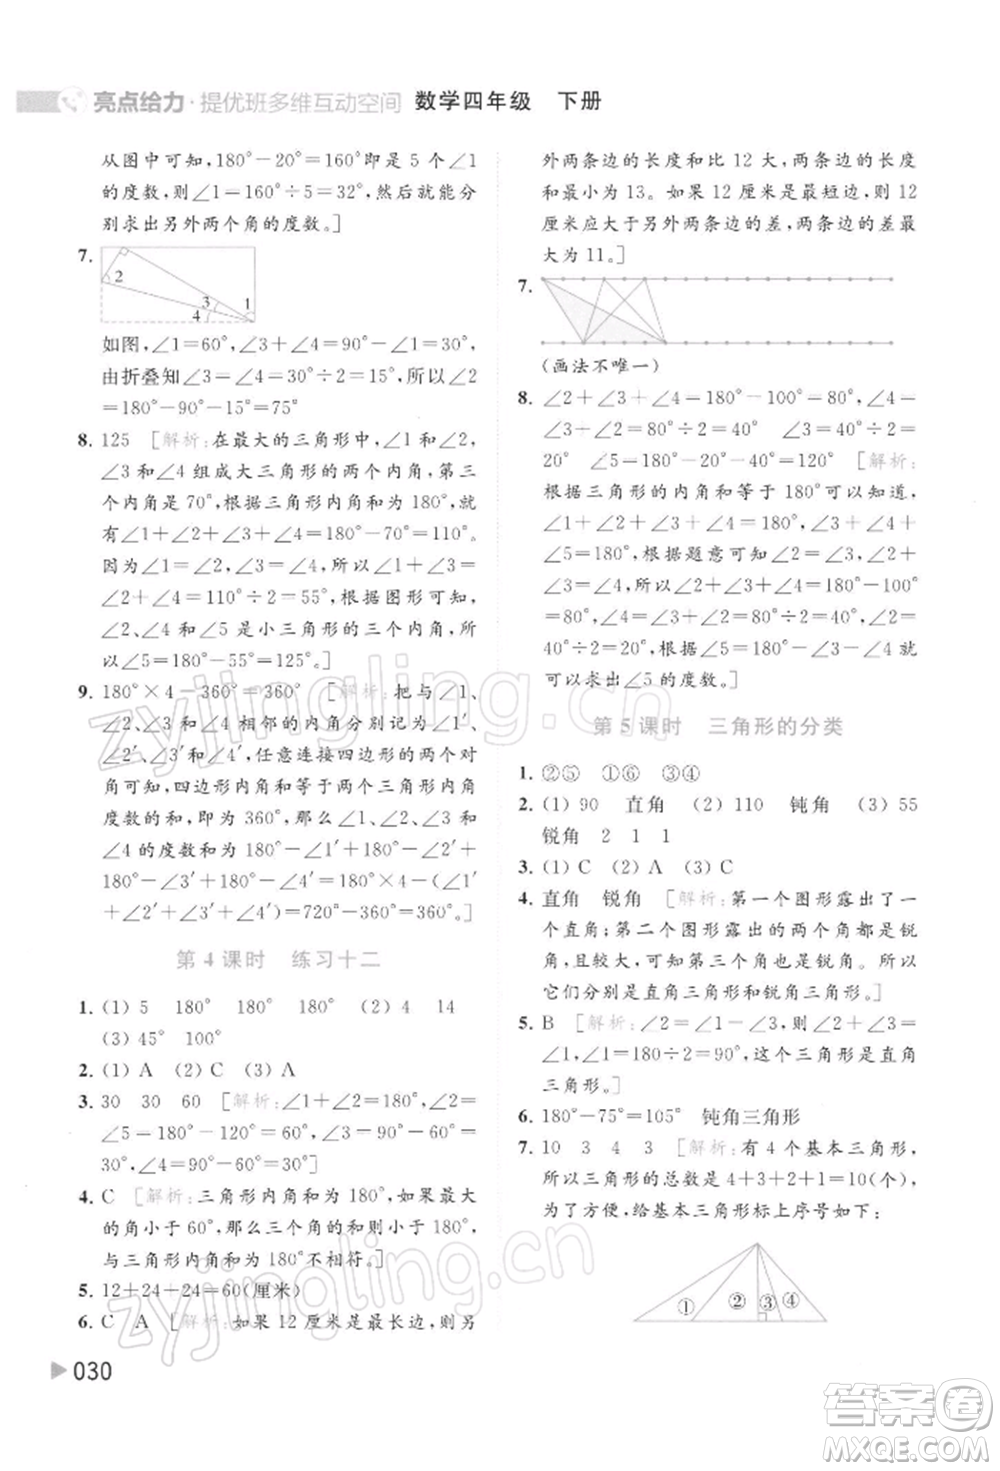 亮点给力·提优班多维互动空间 数学四年级 下册
从图中可知,180°-20°=160°即是 5 个∠1
的度数,则∠1=160°÷5=32°,然后就能分
别求出另外两个角的度数。]
7.
2
3
4
1
如图,∠1=60°,∠3+∠4=90°-60°=30°,
由折叠知∠3=∠4=30°÷2=15°,所以∠2
=180°-90°-15°=75°
8. 125 [解析:在最大的三角形中,∠1和∠2、
∠3 和∠4 组成大三角形的两个内角,第三
个内角是 70°,根据三角形内角和为 180°,就
有∠1+∠2+∠3+∠4=180°-70°=110°。
因为∠1=∠2,∠3=∠4,所以∠1+∠3=
∠2+∠4=110°÷2=55°,根据图形可知,
∠2、∠4、∠5是小三角形的三个内角,所
以,∠5=180°-55°=125°。]
9. 180°×4-360°=360° [解析:把与∠1、
∠2、∠3、∠4 相邻的内角分别记为∠1′、
∠2′、∠3′、∠4′,任意连接四边形的两个顶
点可知,四边形内角和是两个三角形内角
度数的和,即为 360°,那么∠1、∠2、∠3 和
∠4 的度数和为 180°×4-(∠1′+∠2′+
∠3′+∠4′)=180°+180°+180°+180°-(∠1′
+∠2′+∠3′+∠4′)=720°-360°=360°。]
第 4 课时 练习十二
1. (1) 5 180° 180° 180° (2) 4 14
(3) 45° 100°
2. (1) A (2) C (3) A
3. 30 30 60 [解析:∠1+∠2=180°-
∠5=180°-120°=60°,∠1=∠2=60°÷2=
30°,∠4=90°-30°=60°]
4. C [解析:三角形内角和为 180°,如果最大
的角小于 60°,那么三个角的和则小于 180°,
与三角形内角和为180°不相符。]
5. 12+24+24=60(厘米)
6. C A [解析:如果 12 厘米是最长边,则另
外两条边的长度和比 12 大,两条边的长度
和最小为 13。如果 12 厘米是最短边,则 12
厘米应大于另外两条边的差,两条边的差最
大为 11。]
7.
(画法不唯一)
8. ∠2+∠3+∠4=180°-100°=80°,∠4=
∠2+∠3=80°÷2=40°,∠2=∠3=40°÷2=
20° ∠5=180°-80°-20°=80° [解析:
根据三角形的内角和等于 180°可以知道,
∠1+∠2+∠3+∠4=180°,∠2+∠4+
∠5=180°,根据题意可知∠2=∠3,∠2+
∠3=∠4,所以∠2+∠3+∠4=180°-100°
=80°,∠4=∠2+∠3=80°÷2=40°,∠2=
40°÷2=20°,∠5=180°-40°-20°=120°。就
可以求出∠5的度数。]
第 5 课时 三角形的分类
1. ②⑤ ①⑥ ③④
2. (1) 90 直角 (2) 110 钝角 (3) 55
锐角 2 1 1
3. (1) C (2) A (3) C
4. 直角 锐角 [解析:第一个图形露出了一
个直角,第二个图形露出的两个角都是锐
角,且较大,可知第三个角也是锐角。所以
它们分别是直角三角形和锐角三角形。]
5. B [解析:∠2=180°-∠1-∠3,则∠1=
∠2+∠3,∠1=180°÷2=90°,这个三角形是直角
三角形。]
6. 180°-75°=105° 钝角三角形
7. 10 3 4 3 [解析:有 4 个基本三角形,
所以三角形的总数是 4+3+2+1=10(个)。
为了方便,给基本三角形标上序号如下:
① ② ③ ④
030
zyjingling.cn
zyjingling.cn
答案圈
MXQE.COM